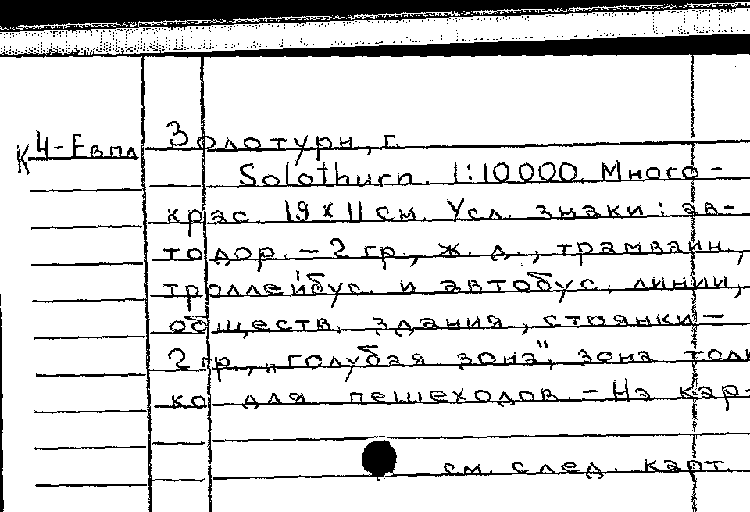 К 4-Евпл Золотурн, г.
Solothurn. 1:10000. Много-
крас. 19 х 11 см. Усл. знаки: ав-
тодор. - 2 гр., ж. д., трамвайн.,
троллейбус. и автобус. линии,
обществ. здания, стоянки -
2 гр., „голубая зона", зона толь
ко для пешеходов - На кар-
см. след. карт.